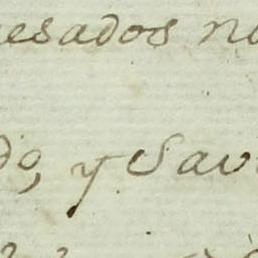 esados no
do, y Sav